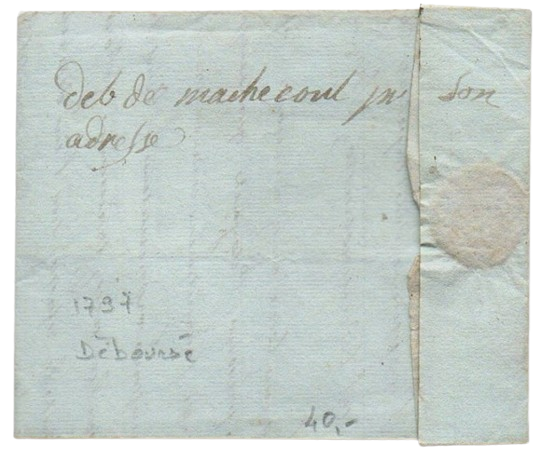 deb de machecoul pr son
adresse
1797
Déboursé
40,-